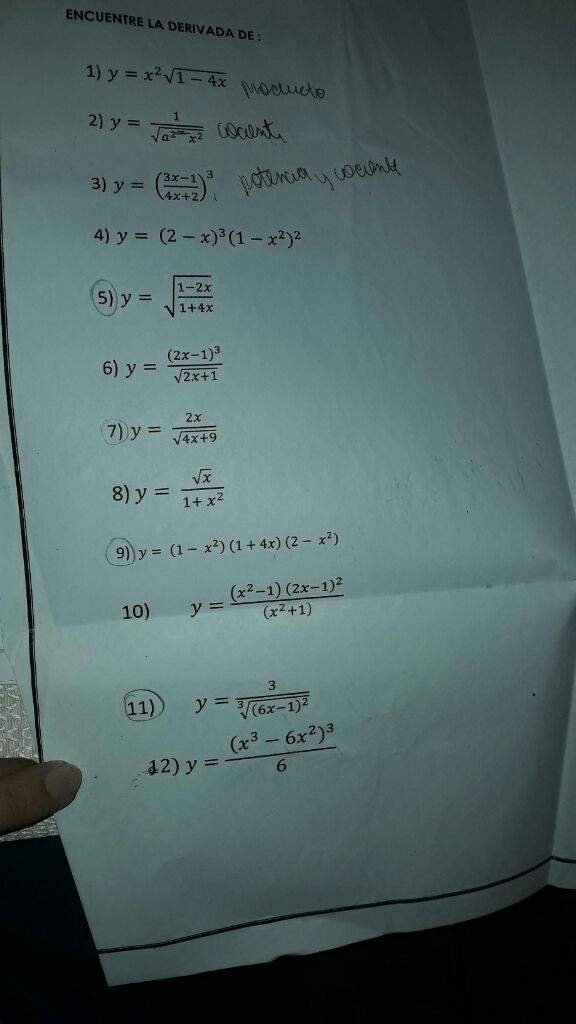 ENCUENTRE LA DERIVADA DE :
1) y = x²√(1 − 4x) producto
2) y = 1/√(a² − x²) cociente
3) y = ((3x−1)/(4x+2))³ potencia y cociente
4) y = (2 − x)³(1 − x²)²
5) y = √((1−2x)/(1+4x))
6) y = (2x−1)³/√(2x+1)
7) y = 2x/√(4x+9)
8) y = √x/(1+ x²)
9) y = (1 − x²) (1 + 4x) (2 − x²)
10) y = (x²−1) (2x−1)²/(x²+1)
11) y = 3/∛((6x−1)²)
12) y = (x³ − 6x²)³/6